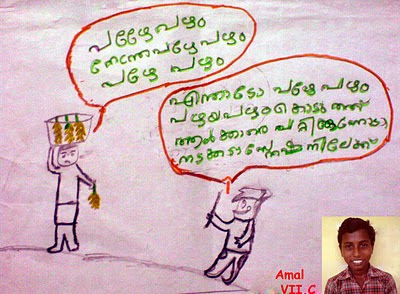 പഴേ പഴം
നേന്ത്രപഴേ പഴം
പഴേ പഴം
എന്താടോ പഴേ പഴം
പഴയപഴം കൊടുത്ത്
ആൾക്കാരെ പറ്റിക്കുന്നോടാ
നടക്കടാ സ്റ്റേഷനിലേക്ക്
Amal
VII.C